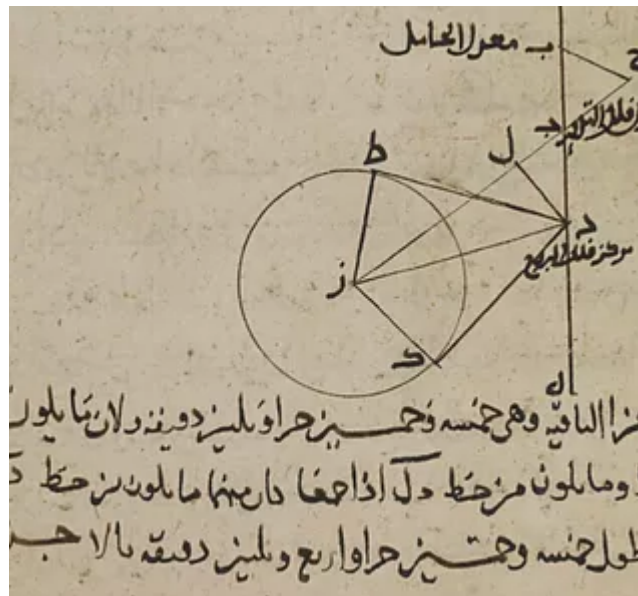 ب معدل الحامل
ح
ج
فلك التد
ل
ط
د
مركز فلك البروج
ز
ك
ه
الباقيه وهى خمسه وخمسين جزا وثلثين دقيقه ولان ما يكون
وما يكون من خط دك اذا جمعا كان منهما ما يكون من خط
طول خمسه وخمسين جزا واربع وثلثين دقيقه بالا جزا